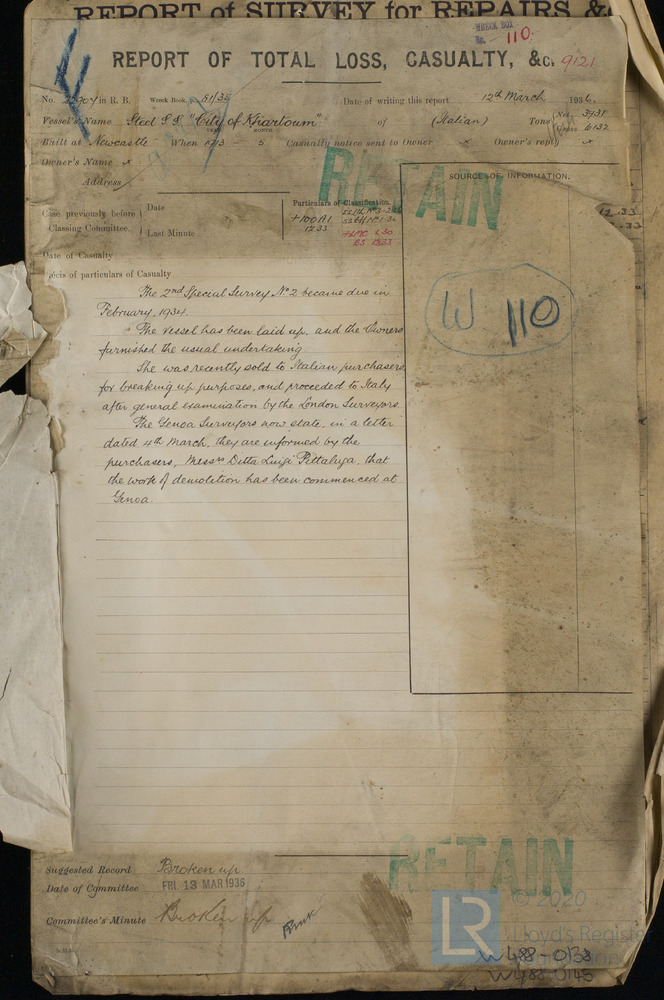 REPORT of SURVEY for REPAIRS, &
WRECK BOX
No. 110.
REPORT OF TOTAL LOSS, CASUALTY, &c. 9121
No. in R. B. Wreck Book, 81/35 Date of writing this report 12th March 1936.
Vessel's Name Steel S.S. "City of Khartoum" of (Italian) Tons Net 3931
Gross 6132
Built at Newcastle When 1913 - 5 Casualty notice sent to Owner x Owner's reply x
YEAR MONTH
Owner's Name x
Address
SOURCE OF INFORMATION.
Case previously before
Classing Committee.
Date
Last Minute
Particulars of Classification.
+100A1
12.33
+LMC 1.30
BS 12.33
12.33
RETAIN
Date of Casualty
Précis of particulars of Casualty
The 2nd Special Survey No 2 became due in
February, 1934.
The vessel has been laid up, and the Owners
furnished the usual undertaking
She was recently sold to Italian purchasers
for breaking up purposes, and proceeded to Italy
after general examination by the London Surveyors.
The Genoa Surveyors now state, in a letter
dated 4th March, they are informed by the
purchasers, Messrs Ditta Luigi Pittaluga, that
the work of demolition has been commenced at
Genoa.
W 110
RETAIN
Suggested Record Broken up
Date of Committee FRI. 13 MAR 1936
Committee's Minute Broken up
© 2020
LR
Lloyd's Register
Foundation
W488-0138
W488-0145